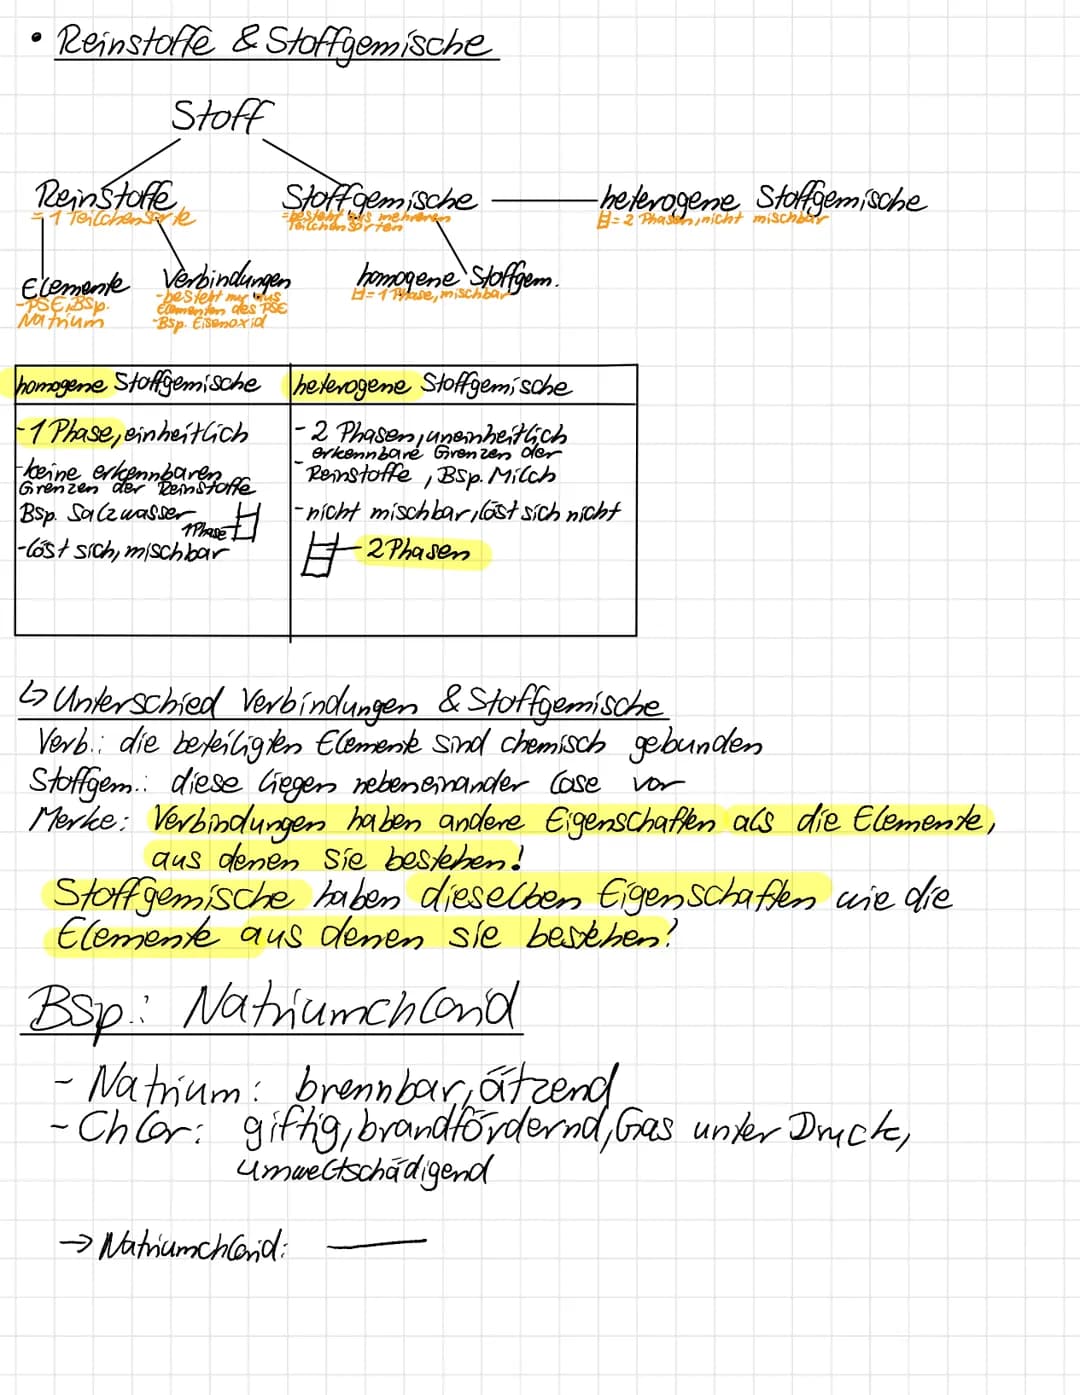 • Reinstoffe & Stoffgemische
Stoff
Reinstoffe
= 1 Teilchensorte
Stoffgemische
=besteht aus mehreren
Teilchensorten
heterogene Stoffgemische
= 2 Phasen, nicht mischbar
Elemente
-PSE, Bsp.
Natrium
Verbindungen
-besteht nur aus
Elementen des PSE
-Bsp. Eisenoxid
homogene Stoffgem.
= 1 Phase, mischbar
homogene Stoffgemische
-1 Phase, einheitlich
-keine erkennbaren
Grenzen der Reinstoffe
Bsp. Salzwasser
1Phase
-löst sich, mischbar
heterogene Stoffgemische
- 2 Phasen, uneinheitlich
- erkennbare Grenzen der
Reinstoffe, Bsp. Milch
-nicht mischbar, löst sich nicht
2 Phasen
↳ Unterschied Verbindungen & Stoffgemische
Verb.: die beteiligten Elemente sind chemisch gebunden
Stoffgem.: diese liegen nebeneinander lose vor
Merke: Verbindungen haben andere Eigenschaften als die Elemente,
aus denen sie bestehen!
Stoffgemische haben dieselben Eigenschaften wie die
Elemente aus denen sie bestehen!
Bsp.: Natriumchlorid
- Natrium: brennbar, ätzend
- Chlor: giftig, brandfördernd, Gas unter Druck,
umweltschädigend
→ Natriumchlorid: —